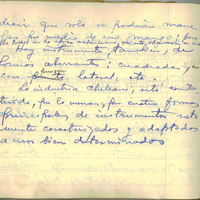 decir que solo se podrian mane
jar por medio de un mango, por
Hay instrumentos tambien de
formas aberrantes: cuadradas,
con punta lateral, etc.
La industria Chelleana, está consti
tuida, por lo menos, por cuatro formas
principales de instrumentos neta
mente caracterizados y adaptados
a usos bien determinados